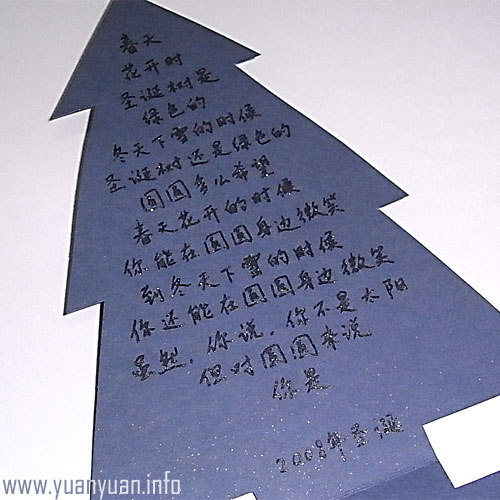 春天
花开时
圣诞树是
绿色的
冬天下雪的时候
圣诞树还是绿色的
圆圆多么希望
春天花开的时候
你能在圆圆身边微笑
到冬天下雪的时候
你还能在圆圆身边微笑
虽然，你说，你不是太阳
但对圆圆来说
你是
2008年圣诞
www.yuanyuan.info